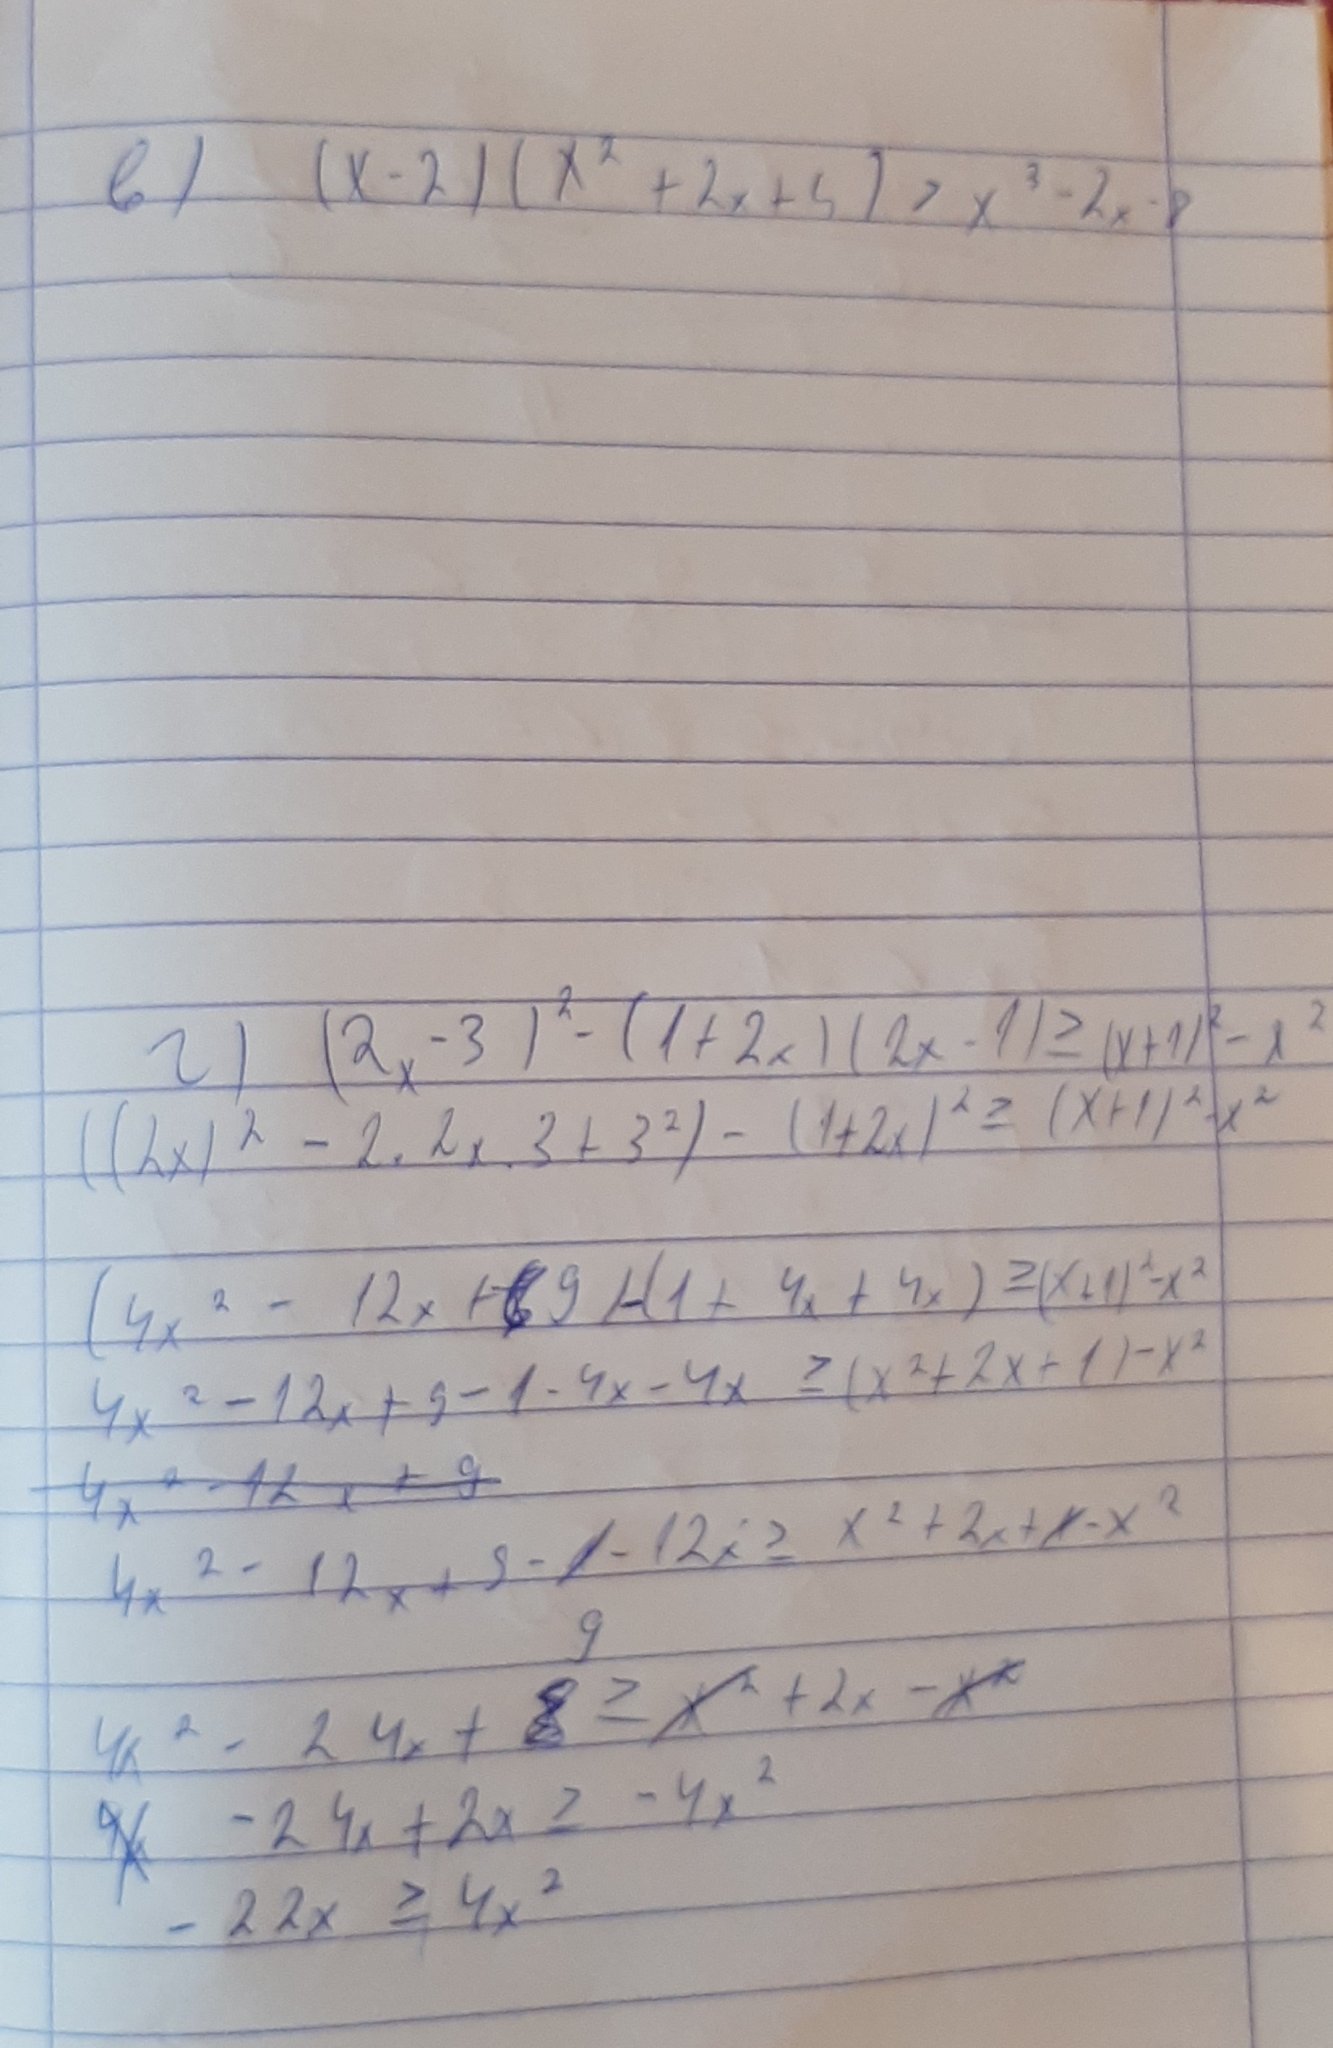 в) (x-2)(x² + 2x+4) > x³ - 2x - 8
г) (2x - 3)² - (1+2x)(2x - 1) ≥ (x+1)² - x²
((2x)² - 2. 2x. 3 + 3²) - (1+2x)² ≥ (x+1)² - x²
(4x² - 12x + 9) - (1 + 4x + 4x) ≥ (x+1)² - x²
4x² - 12x + 9 - 1 - 4x - 4x ≥ (x² + 2x + 1) - x²
4x² - 12x + 9
4x² - 12x + 9 - 1 - 12x ≥ x² + 2x + 1 - x²
9
4x² - 24x + 8 ≥ x² + 2x - x²
- 24x + 2x ≥ - 4x²
- 22x ≥ 4x²